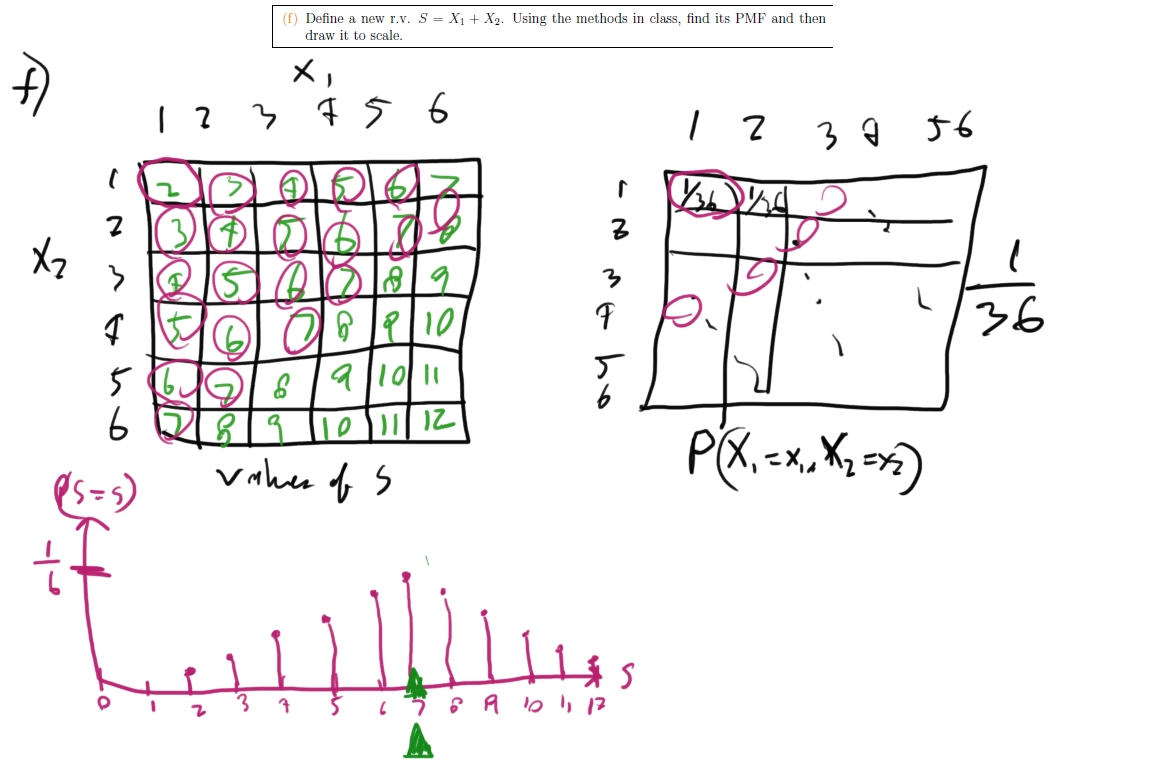 (f) Define a new r.v. S = X₁ + X₂. Using the methods in class, find its PMF and then
draw it to scale.
f)
X₁
1 2 3 4 5 6
X₂
1 2 3 4 5 6 7
2 3 4 5 6 7 8
3 4 5 6 7 8 9
4 5 6 7 8 9 10
5 6 7 8 9 10 11
6 7 8 9 10 11 12
values of S
1 2 3 4 5 6
1 1/36 1/36
2
3
4
5
6
1/36
P(X₁ = x₁, X₂ = x₂)
P(S = s)
1/6
0 1 2 3 4 5 6 7 8 9 10 11 12 S